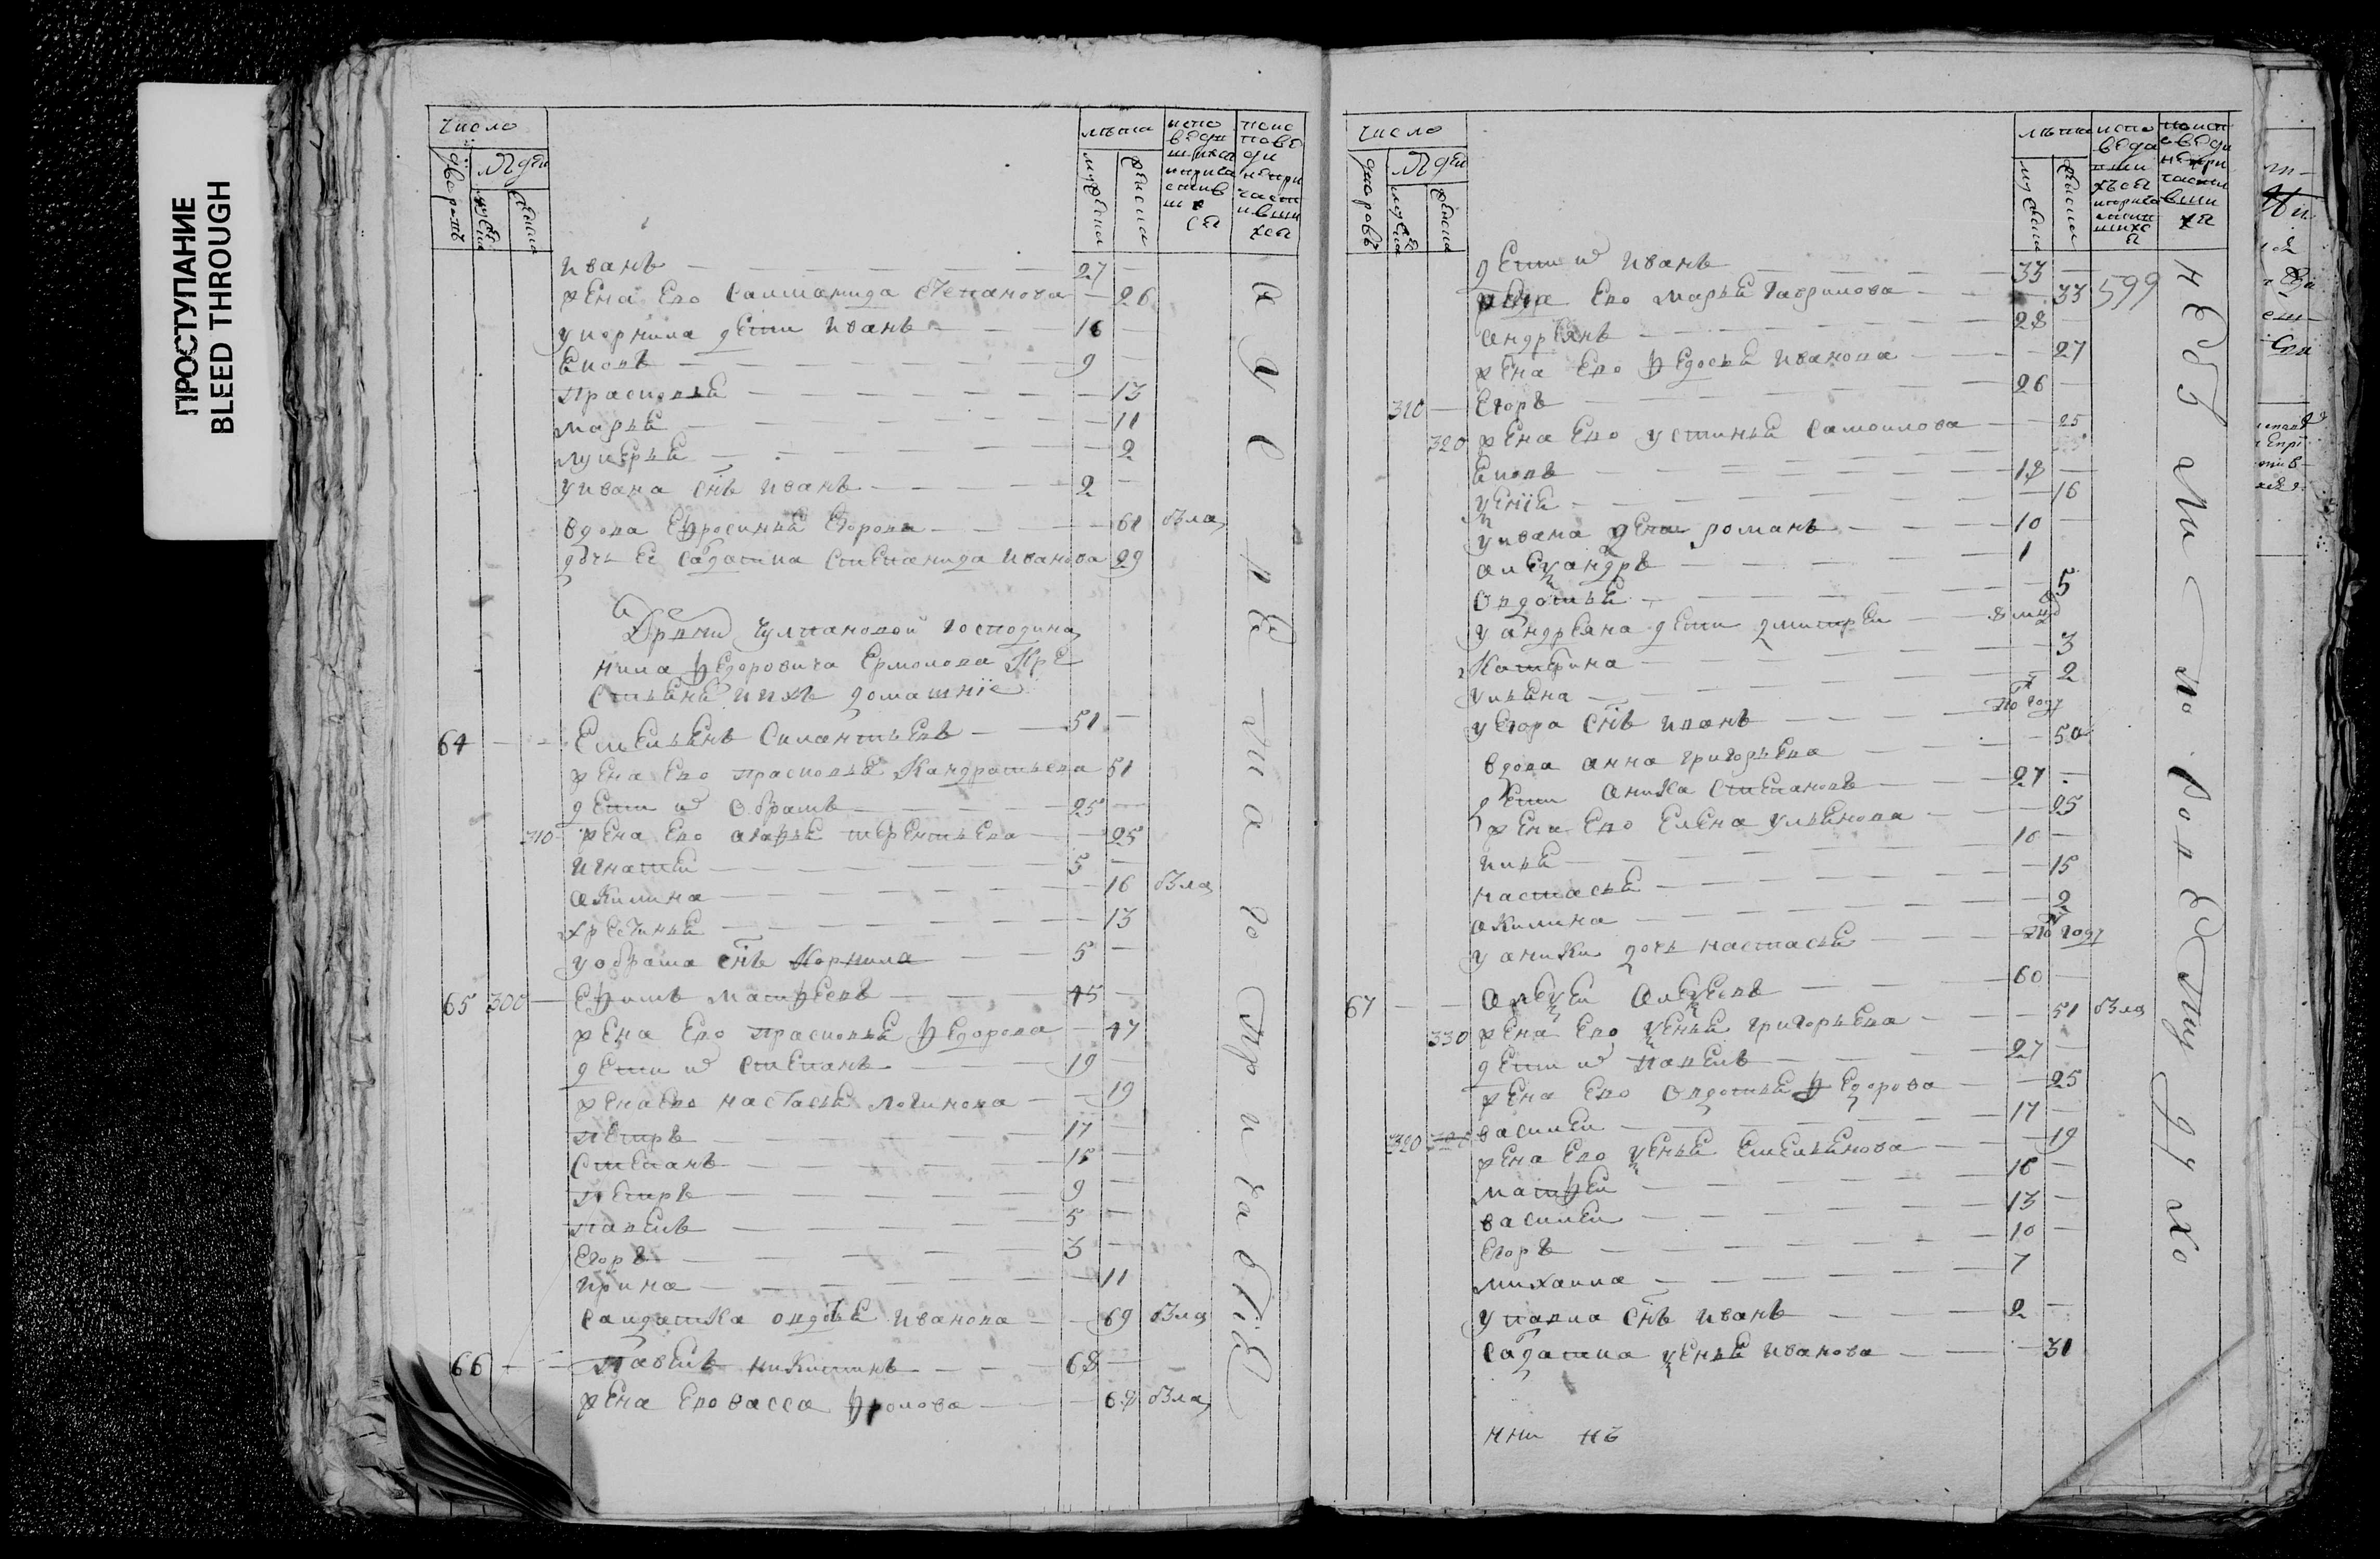 ПРОСТУПАНИЕ
BLEED THROUGH
число
дворовъ
людей
мужеска
женска
лѣта
мужеска
женска
Иванъ 27
жена Ево Саломанида Степанова 26
у корнила дети Иванъ 16
Яковъ 9
Прасковья 13
Марья 11
Лукерья 2
у ивана снъ Иванъ 2
вдова Ефросинья Егорова 61 бзла
дочь Ее салдатка Степанида Иванова 29
Дрвни Чулпановой Господина
нила Федоровича Ермолова Кре
стьяне и ихъ домашніе
64 Емельянъ Силантьевъ 51
жена Ево Прасковья Кандратьева 51
дети их Обрамъ 25
310 жена Ево Агафья Терентьева 25
Игнатей 5
Акилина 16 бзла
Хрестинья 13
у обрама снъ Корнила 5
65 300 Ефимъ Матфеевъ 45
жена Ево Прасковья Федорова 47
дети их Степанъ 19
жена Ево Настасья Логинова 19
Петръ 17
Степанъ 15
Петръ 9
Павелъ 5
Егоръ 3
Ирина 11
Салдатка овдотья Иванова 69 бзла
66 Павелъ Никитинъ 68
жена Ево васса Фролова 68 бзла
число
дворовъ
людей
мужеска
женска
лѣта
мужеска
женска
дети их Иванъ 33
жена Ево Марья Гаврилова 33 599
Андреянъ 28
жена Ево Федосья Иванова 27
310 Егоръ 26
320 жена Ево устинья Самоилова 25
Яковъ 18
Ксенія 16
у ивана дети романъ 10
Александръ 1
Овдотья 5
у андреяна дети дмитреи 8 м
Катерина 3
ульяна 2
у Егора снъ Иванъ По году
вдова анна григорьева 50
дети Аника Степановъ 27
жена Ево Елена ульянова 25
Илья 10
Настасья 15
Акилина 2
у аники дочь настасья По году
67 Алексеи Алексеевъ 60
330 жена Ево Ксенья григорьева 51 бзла
дети их Павелъ 27
жена Ево Овдотья Федорова 25
320 василеи 17
жена Ево Ксенья Емельянова 19
Матфеи 16
василеи 13
Егоръ 10
михаила 7
у павла снъ иванъ 2
Салдатка Ксенья Иванова 31